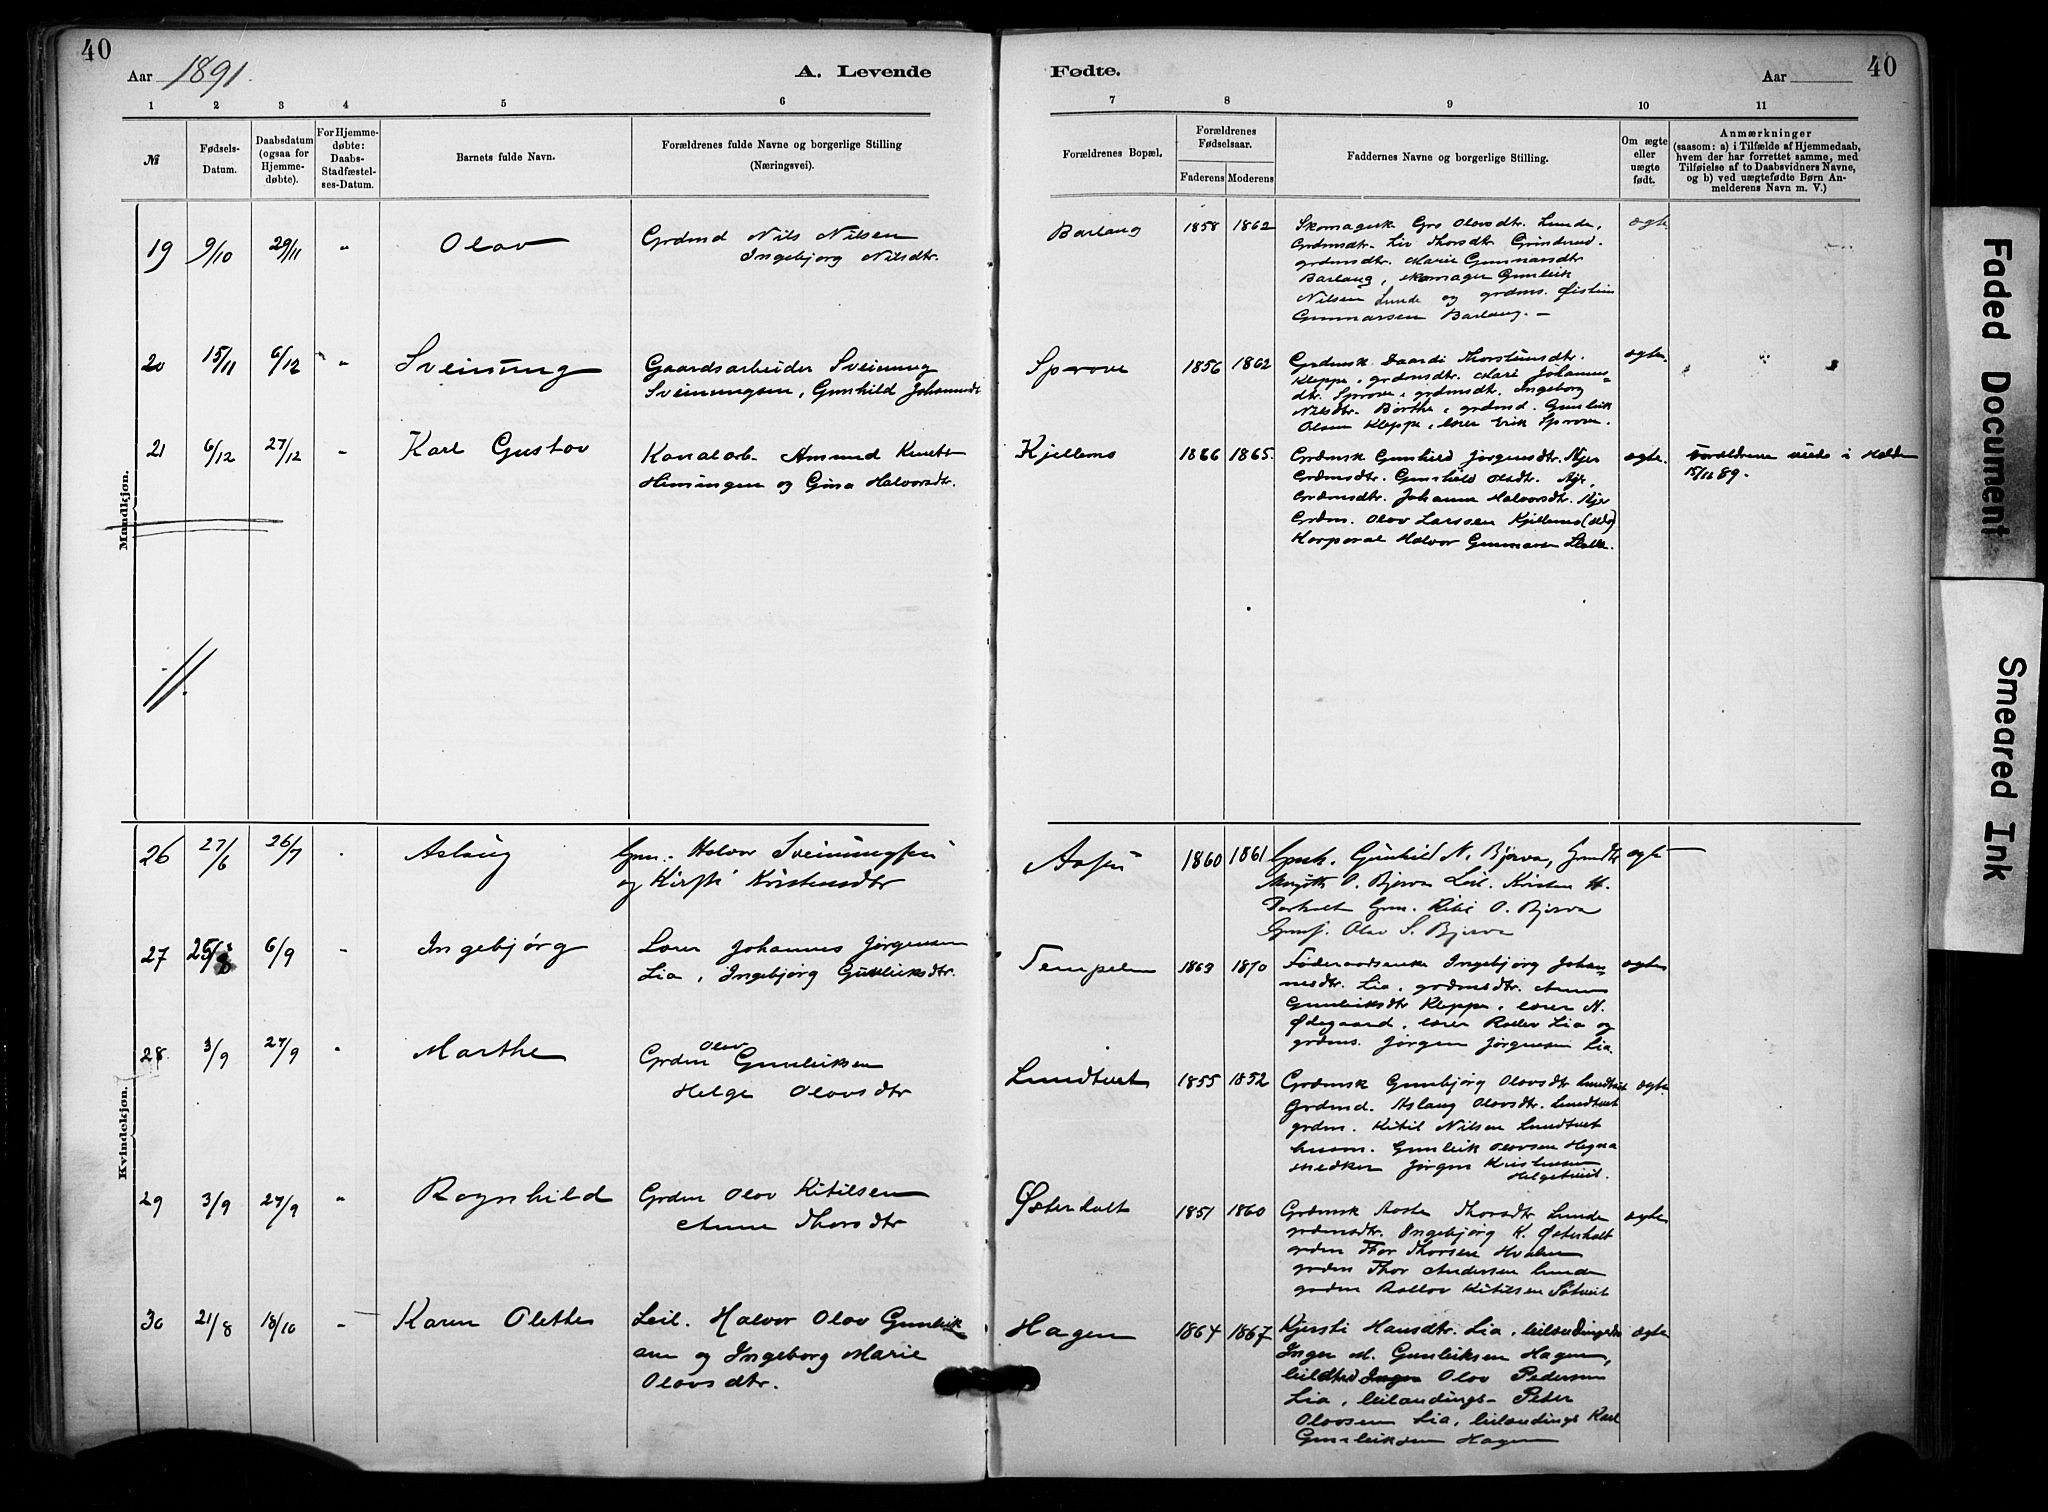 40
Aar 1891.
A. Levende
Fødte.
Aar
40
1 2 3 4 5 6
7 8 9 10 11
№
Fødsels-
Datum.
Daabsdatum
(ogsaa for
Hjemme-
døbte).
For Hjemme-
døbte:
Daabs-
Stadfæstel-
ses-Datum.
Barnets fulde Navn.
Forældrenes fulde Navne og borgerlige Stilling
(Næringsvei).
Forældrenes Bopæl.
Forældrenes
Fødselsaar.
Faderens Moderens
Faddernes Navne og borgerlige Stilling.
Om ægte
eller
uægte
født.
Anmærkninger
(saasom: a) i Tilfælde af Hjemmedaab,
hvem der har forrettet samme, med
Tilføielse af to Daabsvidners Navne,
og b) ved uægtefødte Børn An-
melderens Navn m. V.)
Mandkjøn.
19 9/10 29/11 " Olav
Grdmd Nils Nilsen
Ingebjorg Nilsdtr.
Barlaug 1858 1862
Skomagerk Gro Olavsdtr. Lunde,
Grdmsdtr. Liv Thorsdtr. Grinderud.
grdmsdtr. Marie Gunnarsdtr
Barlaug, skomager Gunleik
Nilsen Lunde og grdms. Øistein
Gunnarsen Barlaug. —
ægte
20 15/11 6/12 " Sveinung
Gaardsarbeider Sveinung
Sveinungsen, Gunhild Johannesdtr
Sprove 1856 1862
Grdmsk Daardi Thorsteinsdtr.
Kleppe, grdmsdtr. Mari Johannes-
dtr. Sprove, grdmsdtr. Ingeborg
Nilsdtr. Borthe, grdmd. Gunleik
Olsen Kleppe, lærer Erik Sprove.
ægte.
21 6/12 27/12 " Karl Gustav
Kanalarb. Amund Knuts
og Gina Halvorsdtr.
Kjellemo 1866 1865.
Grdmsk Gunhild Jørgensdtr.
Grdmsdtr. Gunhild Olsdtr.
Grdmsdtr. Johanne Halvorsdtr.
Grdm. Olav Larssen Kjellemo
Korporal Halvor Gunnarsen
ægte.
Forældrene viede i Holden
15/11 89.
Kvindekjøn.
26 27/6 26/7 Aslaug
Gm. Halvor Sveinungsen
og Kirsti Kristensdtr
Aasen 1860 1861
Gmk. Gunhild N. Bjerva, Gmdtr
O. Bjerva Leil. Kristen H.
Gm. O. Bjerva
Gmf. Olav S. Bjerva
ægte
27 25/8 6/9 " Ingebjørg
Lærer Johannes Jørgensen
Lia, Ingebjørg Gunleiksdtr.
Tempelen 1869 1870
Føderaadsenke Ingebjørg Johan-
nesdtr. Lia, grdmsdtr. Anne
Gunleiksdtr Kleppe, lærer N.
Ødegaard, lærer Rollev Lia og
grdms. Jørgen Jørgensen Lia.
ægte
28 3/9 27/9 " Marthe
Olav
Grdm Gunleiksen
Helge Olavsdtr
Lundtveit 1855 1852
Grdmsk Gunbjørg Olavsdtr Lundtveit
Grdmd. Aslaug Olavsdtr. Lundtveit
grdm. Kitil Nilsen Lundtveit
husm. Gunleik Olavsen Hegna
snedker Jørgen Kristensen
Helgetveit.
ægte
29 3/9 27/9 " Rognhild
Grdm Olav Kitilsen
Anne Thorsdtr
Østerholt 1851 1860
Grdmsk Aaste Thorsdtr Lunde
grdmsdtr. Ingebjørg K. Østerholt
grdm Thor Thorsen Hvalen
grdm Thor Andersen Lunde
grdm Rollov Kitilsen Søtveit
ægte
30 21/8 18/10 " Karen Olethe
Leil. Halvor Olav Gunleik
sen og Ingeborg Marie
Olavsdtr.
Hagen 1864 1867
Kjersti Hansdtr. Lia, leilændinged
Inger M. Gunleiksen Hagen,
Olav Pedersen
Lia, leilændings- Peter
Olavsen Lia, leilændings Karl
Gunleiksen Hagen
ægte
Faded Document
Smeared Ink